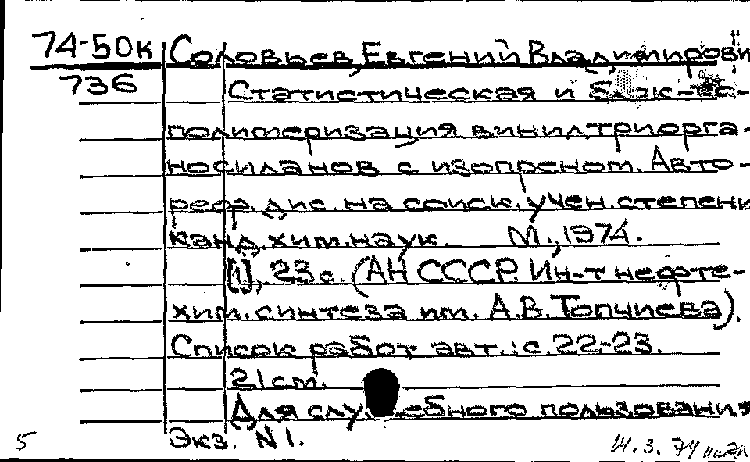 74-50к Соловьев, Евгений Владимирови
736
Статистическая и блок-со-
полимеризация винилтриорга-
носиланов с изопреном. Авто-
реф. дис. на соиск. учен. степени
канд. хим. наук. М., 1974.
[1], 23 с. (АН СССР. Ин-т нефте-
хим. синтеза им. А.В. Топчиева).
Список работ авт.: с. 22-23.
21 см.
Для служебного пользования
5 Экз. N 1.